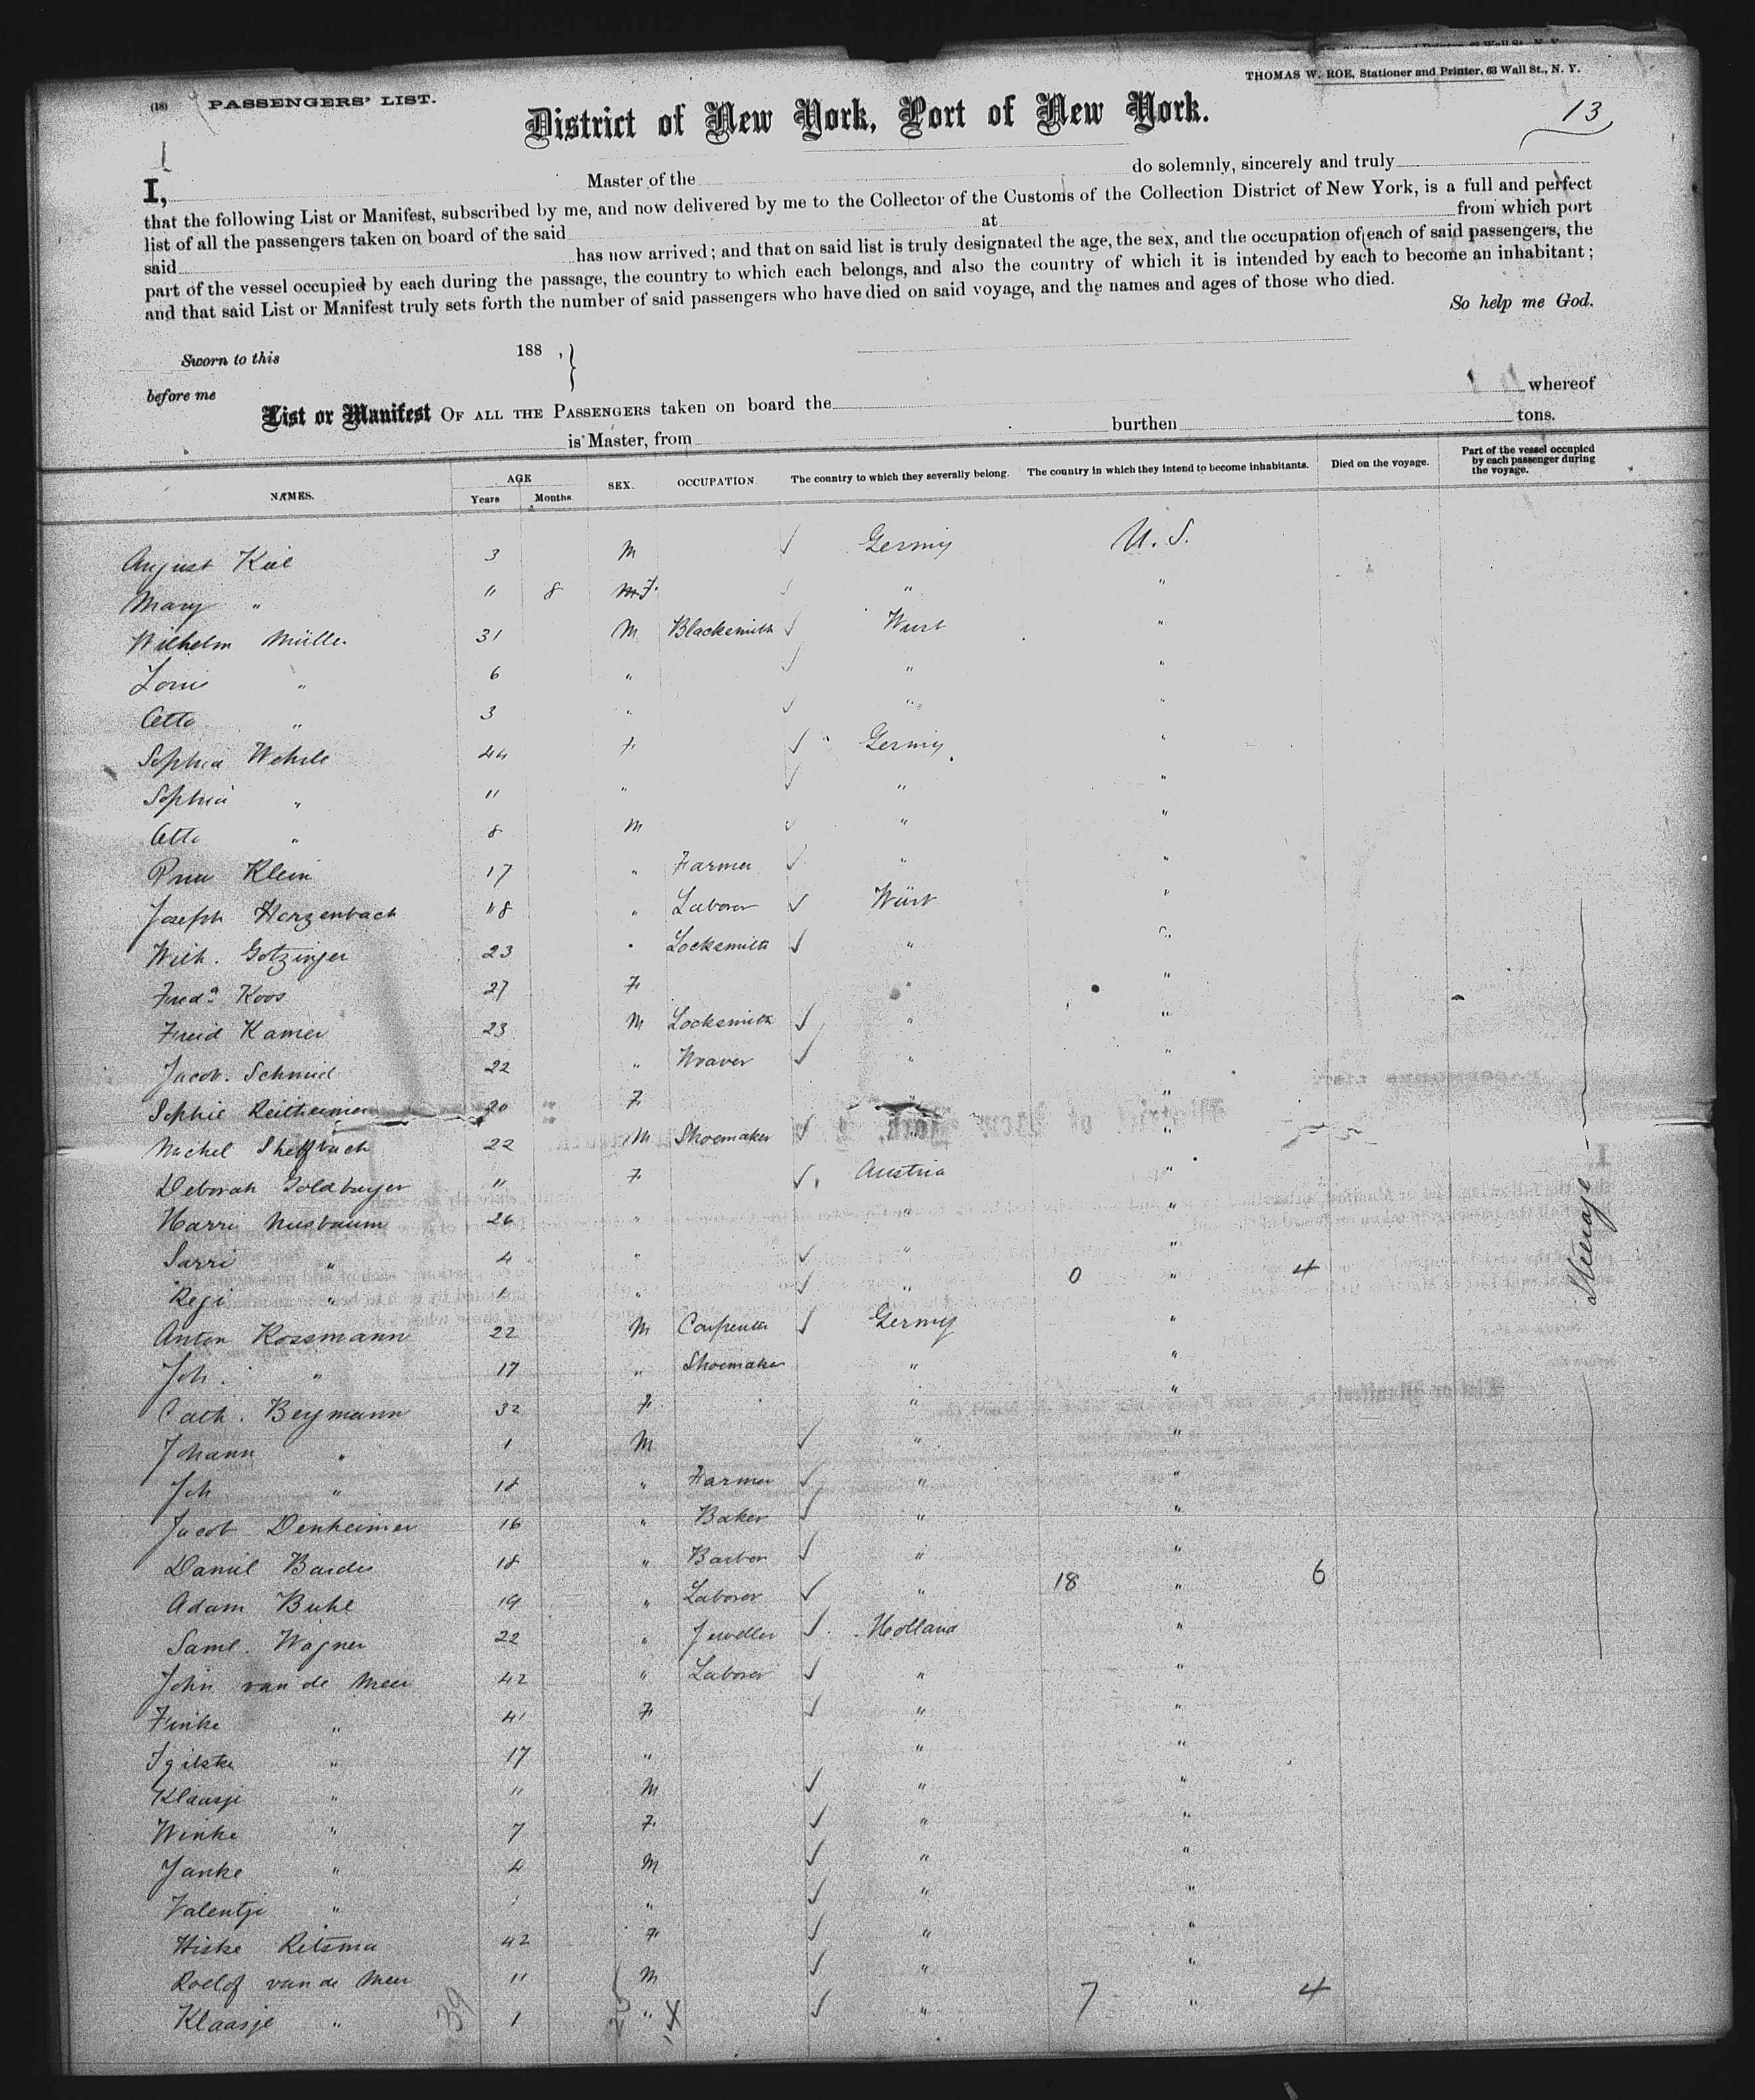 THOMAS W. ROE, Stationer and Printer, 63 Wall St., N. Y.
(18) PASSENGERS' LIST.
13
District of New York, Port of New York.
I, Master of the do solemnly, sincerely and truly
that the following List or Manifest, subscribed by me, and now delivered by me to the Collector of the Customs of the Collection District of New York, is a full and perfect
list of all the passengers taken on board of the said at from which port
said has now arrived; and that on said list is truly designated the age, the sex, and the occupation of each of said passengers, the
part of the vessel occupied by each during the passage, the country to which each belongs, and also the country of which it is intended by each to become an inhabitant;
and that said List or Manifest truly sets forth the number of said passengers who have died on said voyage, and the names and ages of those who died.
So help me God.
Sworn to this 188 ,
before me
List or Manifest OF ALL THE PASSENGERS taken on board the whereof
is Master, from burthen tons.
NAMES. AGE Years Months. SEX. OCCUPATION. The country to which they severally belong. The country in which they intend to become inhabitants. Died on the voyage. Part of the vessel occupied by each passenger during the voyage.
August Kiel 3 M Germy U. S.
Mary " " 8 F. " "
Wilhelm Müller 31 M Blacksmith Wurt "
Louis " 6 " " "
Otto " 3 " " "
Sophia Wehrle 44 F Germy "
Sophia " 11 " " "
Otto " 8 M " "
Klein 17 " Farmer " "
Joseph Herzenbach 18 " Laborer Würt "
Wilh. Gotzinger 23 " Locksmith " "
Freda Koos 27 F " "
Freid Kamer 23 M Locksmith " "
Jacob. Schmid 22 " Weaver " "
Sophie Reitheimer 20 F " "
Michel 22 M Shoemaker " "
Deborah Goldbayer 11 F Austria "
Harri Nusbaum 26 " " "
Sarri " 4 " " "
Regi " 1 " " 0 " 4
Anton Rossmann 22 M Carpenter Germy "
Joh. " 17 " Shoemaker " "
Cath. Bergmann 32 F " "
Johann " 1 M " "
Joh " 18 " Farmer " "
Jacob Denheimer 16 " Baker " "
Daniel Bardes 18 " Barber " "
Adam Buhl 19 " Laborer " 18 " 6
Saml. Wagner 22 " Jeweller Holland "
John van de Meer 42 " Laborer " "
Finke " 41 F " "
" 17 " " "
Klaasje " 11 M " "
Winke " 7 F " "
Janke " 4 M " "
Valentje " 1 " " "
Hiske Ritsma 42 F " "
Roelof van de Meer 11 M " "
Klaasje " 1 " " 7 " 4
39
Steerage